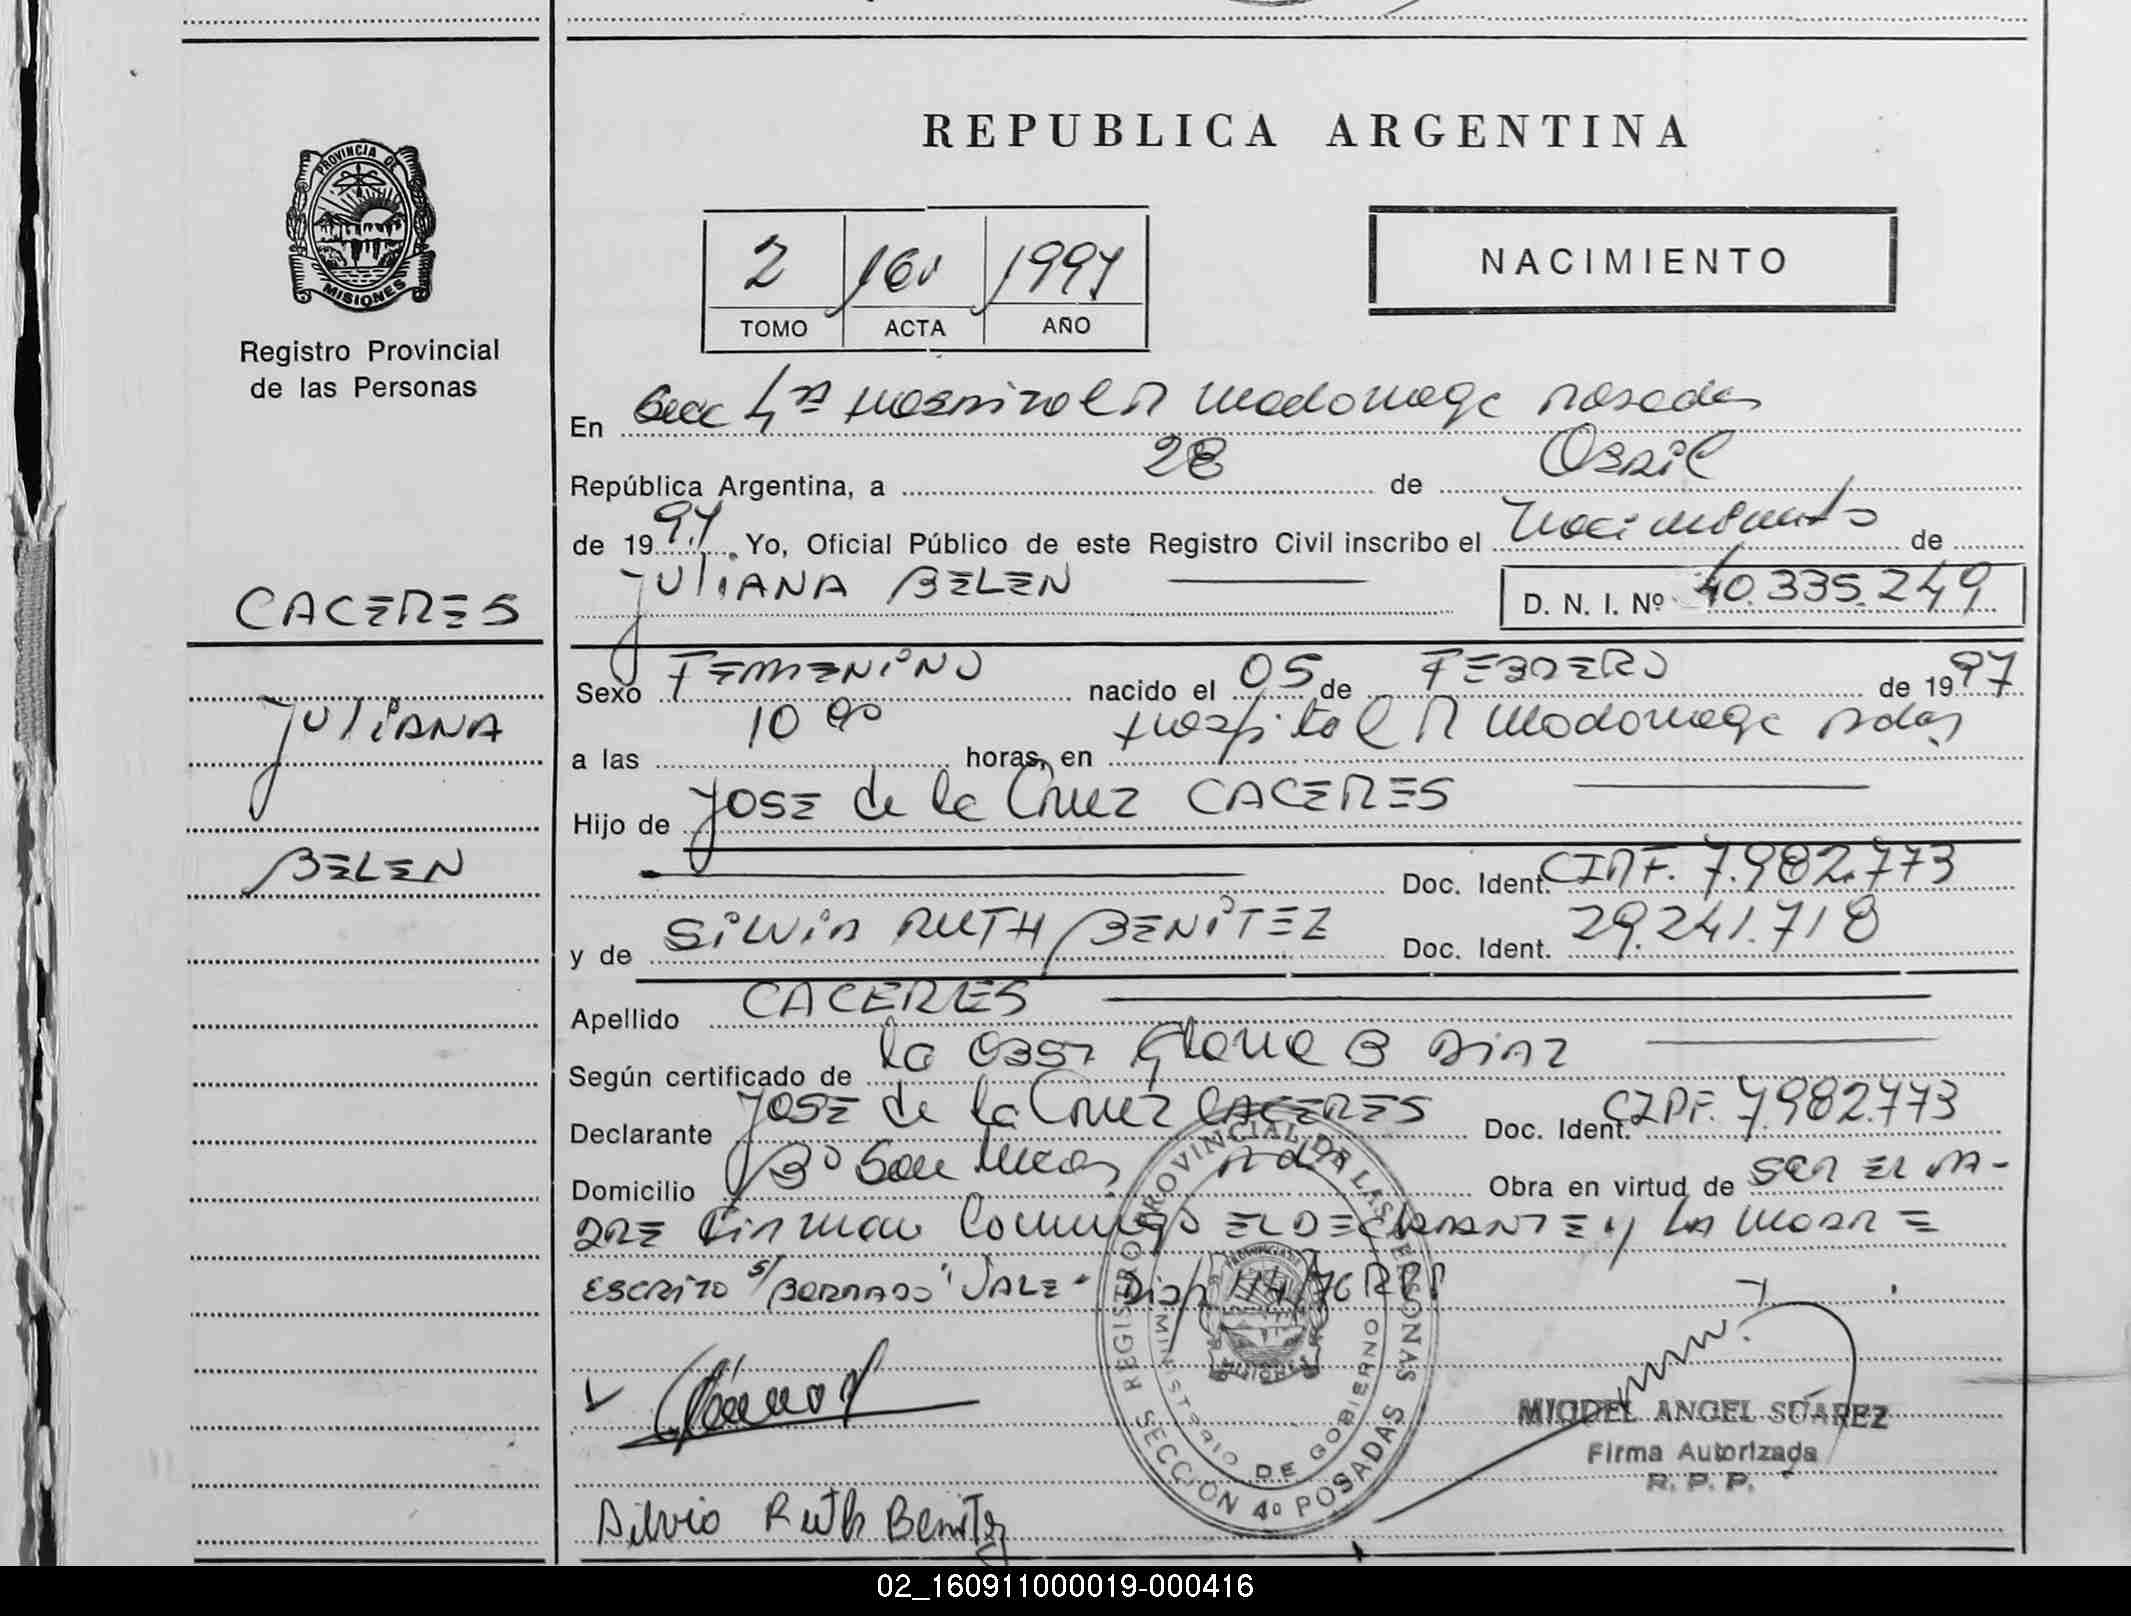 REPUBLICA ARGENTINA
PROVINCIA DE
MISIONES
Registro Provincial
de las Personas
2 1997
TOMO ACTA AÑO
NACIMIENTO
En Secc 4ta Hospital R Madariaga Posadas
República Argentina, a 28 de Abril
de 1997. Yo, Oficial Público de este Registro Civil inscribo el Nacimiento de
JULIANA BELEN D. N. I. Nº 40.335.249
CACERES
JULIANA
BELEN
Sexo FEMENINO nacido el 05 de FEBRERO de 1997
a las 10 00 horas, en Hospital R Madariaga Pdas
Hijo de JOSE de la Cruz CACERES
Doc. Ident. CIPF. 7.982.773
y de SILVIA RUTH BENITEZ Doc. Ident. 29.241.718
Apellido CACERES
Según certificado de la Obst B DIAZ
Declarante JOSE de la Cruz CACERES Doc. Ident. CIPF. 7.982.773
Domicilio Bº San Lucas Pdas Obra en virtud de SER EL PA-
DRE Firman Conmigo EL DECLARANTE y LA MADRE
ESCRITO s/ BORRADO "VALE" Disp 114/76 RPP
REGISTRO PROVINCIAL DE LAS PERSONAS
MINISTERIO DE GOBIERNO
SECCION 4º POSADAS
MIGUEL ANGEL SUAREZ
Firma Autorizada
R. P. P.
Silvia Ruth Benitez
02_160911000019-000416